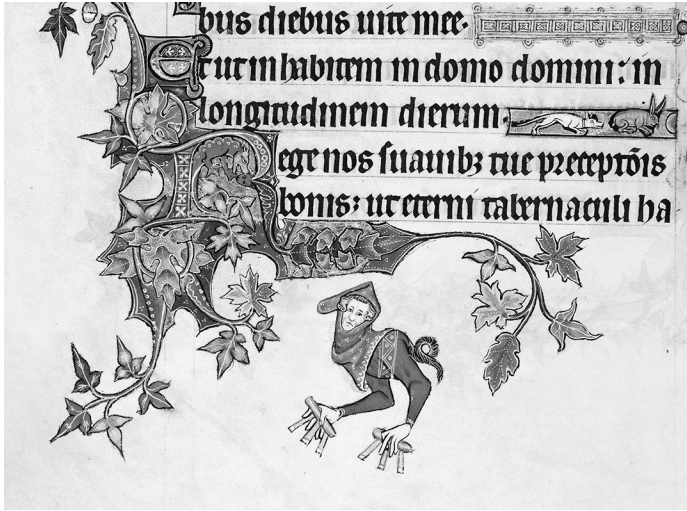 bus diebus uite mee.
Et ut inhabitem in domo domini: in
longitudinem dierum.
Rege nos suauibꝫ tue preceptōis
bonis; ut eterni tabernaculi ha